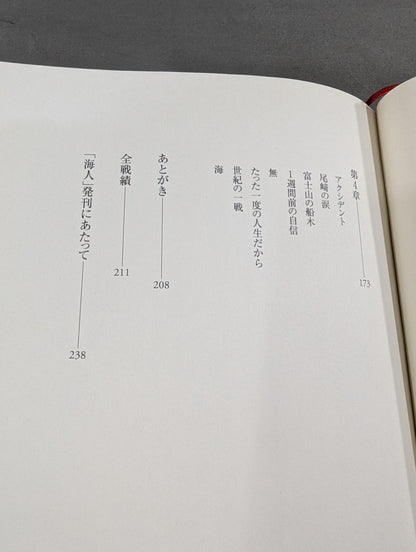 第4章――173
アクシデント
尾﨑の涙
富士山の船木
1週間前の自信
無
たった一度の人生だから
世紀の一戦
海
あとがき――208
全戦績――211
「海人」発刊にあたって――238